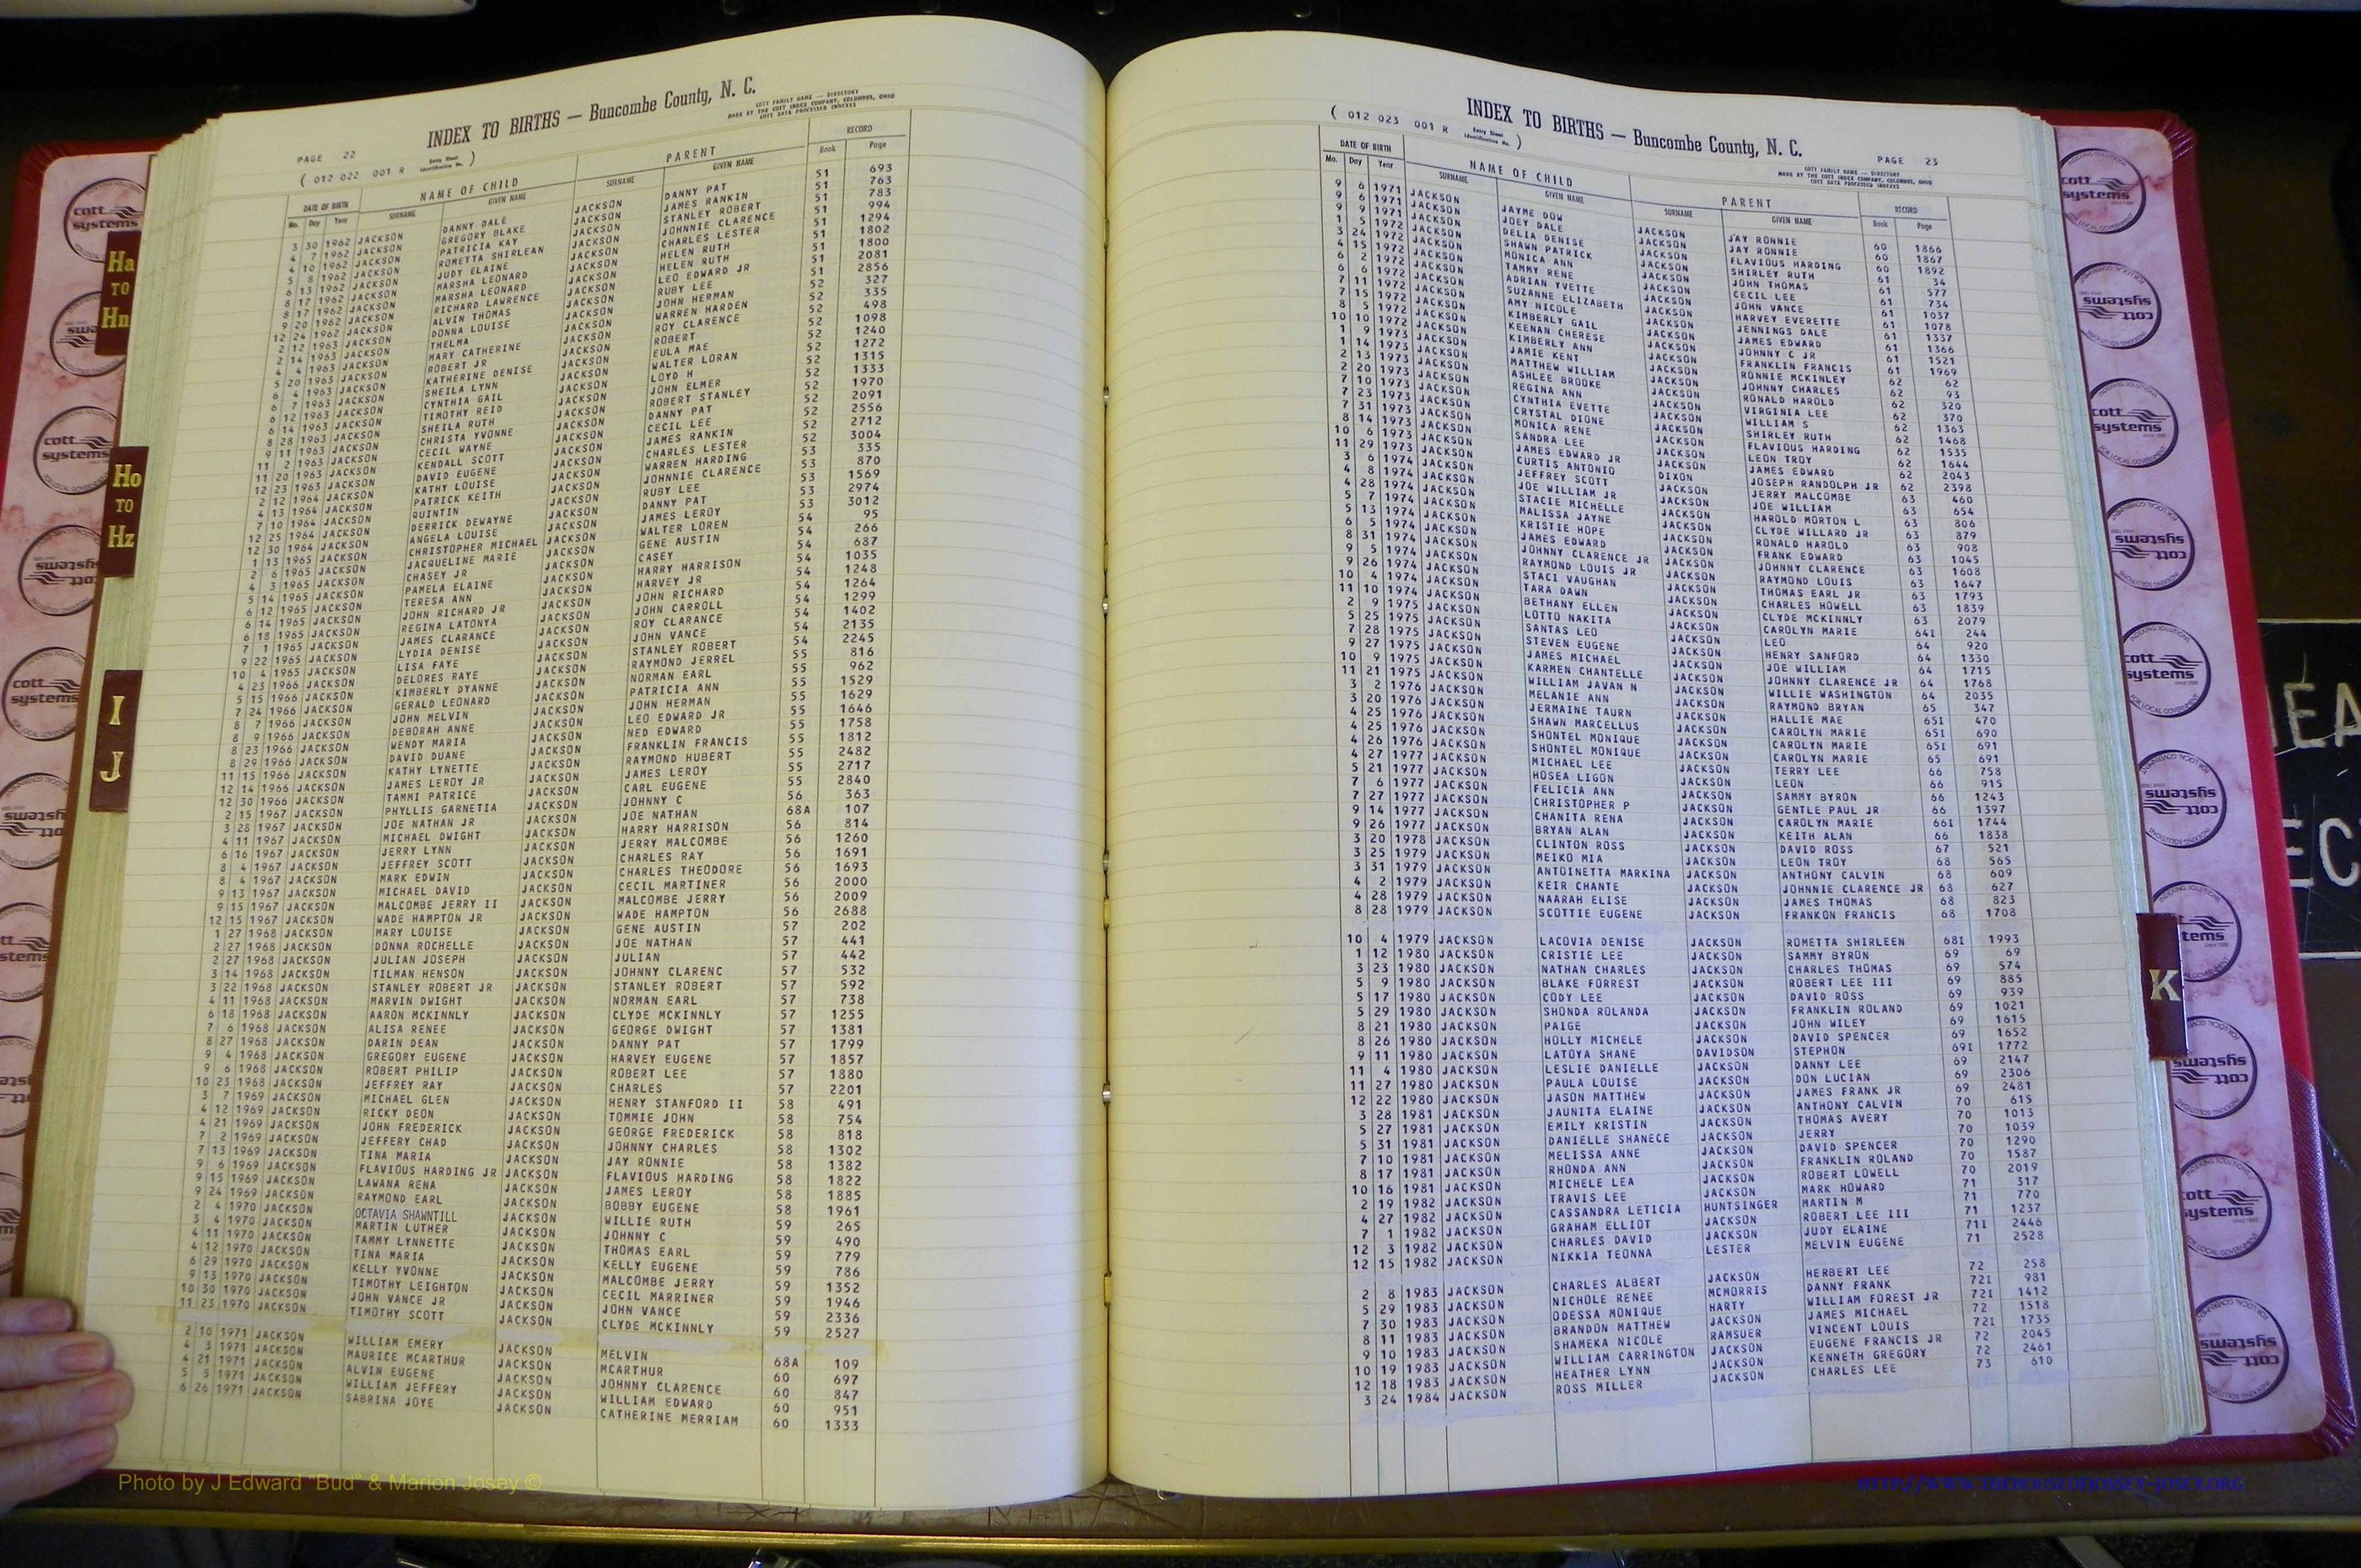 INDEX TO BIRTHS — Buncombe County, N. C.
COTT FAMILY NAME — DIRECTORY
MADE BY THE COTT INDEX COMPANY, COLUMBUS, OHIO
COTT DATA PROCESSED INDEXES
PAGE 22
( 012 022 001 R Entry Sheet Identification No. )
DATE OF BIRTH NAME OF CHILD PARENT RECORD
Mo. Day Year SURNAME GIVEN NAME SURNAME GIVEN NAME Book Page
3 30 1962 JACKSON DANNY DALE JACKSON DANNY PAT 51 693
4 7 1962 JACKSON GREGORY BLAKE JACKSON JAMES RANKIN 51 763
4 10 1962 JACKSON PATRICIA KAY JACKSON STANLEY ROBERT 51 783
5 8 1962 JACKSON ROMETTA SHIRLEAN JACKSON JOHNNIE CLARENCE 51 994
6 13 1962 JACKSON JUDY ELAINE JACKSON CHARLES LESTER 51 1294
8 17 1962 JACKSON MARSHA LEONARD JACKSON HELEN RUTH 51 1802
8 17 1962 JACKSON MARSHA LEONARD JACKSON HELEN RUTH 51 1800
9 20 1962 JACKSON RICHARD LAWRENCE JACKSON LEO EDWARD JR 51 2081
12 24 1962 JACKSON ALVIN THOMAS JACKSON RUBY LEE 51 2856
2 12 1963 JACKSON DONNA LOUISE JACKSON JOHN HERMAN 52 327
2 14 1963 JACKSON THELMA JACKSON WARREN HARDEN 52 335
4 4 1963 JACKSON MARY CATHERINE JACKSON ROY CLARENCE 52 498
5 20 1963 JACKSON ROBERT JR JACKSON ROBERT 52 1098
6 4 1963 JACKSON KATHERINE DENISE JACKSON EULA MAE 52 1240
6 7 1963 JACKSON SHEILA LYNN JACKSON WALTER LORAN 52 1272
6 12 1963 JACKSON CYNTHIA GAIL JACKSON LOYD H 52 1315
6 14 1963 JACKSON TIMOTHY REID JACKSON JOHN ELMER 52 1333
8 28 1963 JACKSON SHEILA RUTH JACKSON ROBERT STANLEY 52 1970
9 11 1963 JACKSON CHRISTA YVONNE JACKSON DANNY PAT 52 2091
11 2 1963 JACKSON CECIL WAYNE JACKSON CECIL LEE 52 2556
11 20 1963 JACKSON KENDALL SCOTT JACKSON JAMES RANKIN 52 2712
12 23 1963 JACKSON DAVID EUGENE JACKSON CHARLES LESTER 52 3004
2 12 1964 JACKSON KATHY LOUISE JACKSON WARREN HARDING 53 335
4 13 1964 JACKSON PATRICK KEITH JACKSON JOHNNIE CLARENCE 53 870
7 10 1964 JACKSON QUINTIN JACKSON RUBY LEE 53 1569
12 25 1964 JACKSON DERRICK DEWAYNE JACKSON DANNY PAT 53 2974
12 30 1964 JACKSON ANGELA LOUISE JACKSON JAMES LEROY 53 3012
1 13 1965 JACKSON CHRISTOPHER MICHAEL JACKSON WALTER LOREN 54 95
2 6 1965 JACKSON JACQUELINE MARIE JACKSON GENE AUSTIN 54 266
4 3 1965 JACKSON CHASEY JR JACKSON CASEY 54 687
5 14 1965 JACKSON PAMELA ELAINE JACKSON HARRY HARRISON 54 1035
6 12 1965 JACKSON TERESA ANN JACKSON HARVEY JR 54 1248
6 14 1965 JACKSON JOHN RICHARD JR JACKSON JOHN RICHARD 54 1264
6 18 1965 JACKSON REGINA LATONYA JACKSON JOHN CARROLL 54 1299
7 1 1965 JACKSON JAMES CLARANCE JACKSON ROY CLARANCE 54 1402
9 22 1965 JACKSON LYDIA DENISE JACKSON JOHN VANCE 54 2135
10 4 1965 JACKSON LISA FAYE JACKSON STANLEY ROBERT 54 2245
4 23 1966 JACKSON DELORES RAYE JACKSON RAYMOND JERREL 55 816
5 15 1966 JACKSON KIMBERLY DYANNE JACKSON NORMAN EARL 55 962
7 24 1966 JACKSON GERALD LEONARD JACKSON PATRICIA ANN 55 1529
8 7 1966 JACKSON JOHN MELVIN JACKSON JOHN HERMAN 55 1629
8 9 1966 JACKSON DEBORAH ANNE JACKSON LEO EDWARD JR 55 1646
8 23 1966 JACKSON WENDY MARIA JACKSON NED EDWARD 55 1758
8 29 1966 JACKSON DAVID DUANE JACKSON FRANKLIN FRANCIS 55 1812
11 15 1966 JACKSON KATHY LYNETTE JACKSON RAYMOND HUBERT 55 2482
12 14 1966 JACKSON JAMES LEROY JR JACKSON JAMES LEROY 55 2717
12 30 1966 JACKSON TAMMI PATRICE JACKSON CARL EUGENE 55 2840
2 15 1967 JACKSON PHYLLIS GARNETIA JACKSON JOHNNY C 56 363
3 28 1967 JACKSON JOE NATHAN JR JACKSON JOE NATHAN 68A 107
4 11 1967 JACKSON MICHAEL DWIGHT JACKSON HARRY HARRISON 56 814
6 16 1967 JACKSON JERRY LYNN JACKSON JERRY MALCOMBE 56 1260
8 4 1967 JACKSON JEFFREY SCOTT JACKSON CHARLES RAY 56 1691
8 4 1967 JACKSON MARK EDWIN JACKSON CHARLES THEODORE 56 1693
9 13 1967 JACKSON MICHAEL DAVID JACKSON CECIL MARTINER 56 2000
9 15 1967 JACKSON MALCOMBE JERRY II JACKSON MALCOMBE JERRY 56 2009
12 15 1967 JACKSON WADE HAMPTON JR JACKSON WADE HAMPTON 56 2688
1 27 1968 JACKSON MARY LOUISE JACKSON GENE AUSTIN 57 202
2 27 1968 JACKSON DONNA ROCHELLE JACKSON JOE NATHAN 57 441
2 27 1968 JACKSON JULIAN JOSEPH JACKSON JULIAN 57 442
3 14 1968 JACKSON TILMAN HENSON JACKSON JOHNNY CLARENC 57 532
3 22 1968 JACKSON STANLEY ROBERT JR JACKSON STANLEY ROBERT 57 592
4 11 1968 JACKSON MARVIN DWIGHT JACKSON NORMAN EARL 57 738
6 18 1968 JACKSON AARON MCKINNLY JACKSON CLYDE MCKINNLY 57 1255
7 6 1968 JACKSON ALISA RENEE JACKSON GEORGE DWIGHT 57 1381
8 27 1968 JACKSON DARIN DEAN JACKSON DANNY PAT 57 1799
9 4 1968 JACKSON GREGORY EUGENE JACKSON HARVEY EUGENE 57 1857
9 6 1968 JACKSON ROBERT PHILIP JACKSON ROBERT LEE 57 1880
10 23 1968 JACKSON JEFFREY RAY JACKSON CHARLES 57 2201
3 7 1969 JACKSON MICHAEL GLEN JACKSON HENRY STANFORD II 58 491
4 12 1969 JACKSON RICKY DEON JACKSON TOMMIE JOHN 58 754
4 21 1969 JACKSON JOHN FREDERICK JACKSON GEORGE FREDERICK 58 818
7 2 1969 JACKSON JEFFERY CHAD JACKSON JOHNNY CHARLES 58 1302
7 13 1969 JACKSON TINA MARIA JACKSON JAY RONNIE 58 1382
9 6 1969 JACKSON FLAVIOUS HARDING JR JACKSON FLAVIOUS HARDING 58 1822
9 15 1969 JACKSON LAWANA RENA JACKSON JAMES LEROY 58 1885
9 24 1969 JACKSON RAYMOND EARL JACKSON BOBBY EUGENE 58 1961
2 4 1970 JACKSON OCTAVIA SHAWNTILL JACKSON WILLIE RUTH 59 265
3 4 1970 JACKSON MARTIN LUTHER JACKSON JOHNNY C 59 490
4 11 1970 JACKSON TAMMY LYNNETTE JACKSON THOMAS EARL 59 779
4 12 1970 JACKSON TINA MARIA JACKSON KELLY EUGENE 59 786
6 29 1970 JACKSON KELLY YVONNE JACKSON MALCOMBE JERRY 59 1352
9 13 1970 JACKSON TIMOTHY LEIGHTON JACKSON CECIL MARRINER 59 1946
10 30 1970 JACKSON JOHN VANCE JR JACKSON JOHN VANCE 59 2336
11 23 1970 JACKSON TIMOTHY SCOTT JACKSON CLYDE MCKINNLY 59 2527
2 10 1971 JACKSON WILLIAM EMERY JACKSON MELVIN 68A 109
4 3 1971 JACKSON MAURICE MCARTHUR JACKSON MCARTHUR 60 697
4 21 1971 JACKSON ALVIN EUGENE JACKSON JOHNNY CLARENCE 60 847
5 5 1971 JACKSON WILLIAM JEFFERY JACKSON WILLIAM EDWARD 60 951
6 26 1971 JACKSON SABRINA JOYE JACKSON CATHERINE MERRIAM 60 1333
Ha TO Hn
Ho TO Hz
I
J
Photo by J Edward "Bud" & Marion Josey ©
( 012 023 001 R Entry Sheet Identification No. )
INDEX TO BIRTHS — Buncombe County, N. C.
PAGE 23
COTT FAMILY NAME — DIRECTORY
MADE BY THE COTT INDEX COMPANY, COLUMBUS, OHIO
COTT DATA PROCESSED INDEXES
DATE OF BIRTH NAME OF CHILD PARENT RECORD
Mo. Day Year SURNAME GIVEN NAME SURNAME GIVEN NAME Book Page
9 6 1971 JACKSON JAYME DOW JACKSON JAY RONNIE 60 1866
9 6 1971 JACKSON JOEY DALE JACKSON JAY RONNIE 60 1867
9 9 1971 JACKSON DELIA DENISE JACKSON FLAVIOUS HARDING 60 1892
1 5 1972 JACKSON SHAWN PATRICK JACKSON SHIRLEY RUTH 61 34
3 24 1972 JACKSON MONICA ANN JACKSON JOHN THOMAS 61 577
4 15 1972 JACKSON TAMMY RENE JACKSON CECIL LEE 61 734
6 2 1972 JACKSON ADRIAN YVETTE JACKSON JOHN VANCE 61 1037
6 6 1972 JACKSON SUZANNE ELIZABETH JACKSON HARVEY EVERETTE 61 1078
7 11 1972 JACKSON AMY NICOLE JACKSON JENNINGS DALE 61 1337
7 15 1972 JACKSON KIMBERLY GAIL JACKSON JAMES EDWARD 61 1366
8 5 1972 JACKSON KEENAN CHERESE JACKSON JOHNNY C JR 61 1521
10 10 1972 JACKSON KIMBERLY ANN JACKSON FRANKLIN FRANCIS 61 1969
1 9 1973 JACKSON JAMIE KENT JACKSON RONNIE MCKINLEY 62 62
1 14 1973 JACKSON MATTHEW WILLIAM JACKSON JOHNNY CHARLES 62 93
2 13 1973 JACKSON ASHLEE BROOKE JACKSON RONALD HAROLD 62 320
2 20 1973 JACKSON REGINA ANN JACKSON VIRGINIA LEE 62 370
7 10 1973 JACKSON CYNTHIA EVETTE JACKSON WILLIAM S 62 1363
7 23 1973 JACKSON CRYSTAL DIONE JACKSON SHIRLEY RUTH 62 1468
7 31 1973 JACKSON MONICA RENE JACKSON FLAVIOUS HARDING 62 1535
8 14 1973 JACKSON SANDRA LEE JACKSON LEON TROY 62 1644
10 6 1973 JACKSON JAMES EDWARD JR JACKSON JAMES EDWARD 62 2043
11 29 1973 JACKSON CURTIS ANTONIO DIXON JOSEPH RANDOLPH JR 62 2398
3 6 1974 JACKSON JEFFREY SCOTT JACKSON JERRY MALCOMBE 63 460
4 8 1974 JACKSON JOE WILLIAM JR JACKSON JOE WILLIAM 63 654
4 28 1974 JACKSON STACIE MICHELLE JACKSON HAROLD MORTON L 63 806
5 7 1974 JACKSON MALISSA JAYNE JACKSON CLYDE WILLARD JR 63 879
5 13 1974 JACKSON KRISTIE HOPE JACKSON RONALD HAROLD 63 908
6 5 1974 JACKSON JAMES EDWARD JACKSON FRANK EDWARD 63 1045
8 31 1974 JACKSON JOHNNY CLARENCE JR JACKSON JOHNNY CLARENCE 63 1608
9 5 1974 JACKSON RAYMOND LOUIS JR JACKSON RAYMOND LOUIS 63 1647
9 26 1974 JACKSON STACI VAUGHAN JACKSON THOMAS EARL JR 63 1793
10 4 1974 JACKSON TARA DAWN JACKSON CHARLES HOWELL 63 1839
11 10 1974 JACKSON BETHANY ELLEN JACKSON CLYDE MCKINNLY 63 2079
2 9 1975 JACKSON LOTTO NAKITA JACKSON CAROLYN MARIE 64I 244
5 25 1975 JACKSON SANTAS LEO JACKSON LEO 64 920
7 28 1975 JACKSON STEVEN EUGENE JACKSON HENRY SANFORD 64 1330
9 27 1975 JACKSON JAMES MICHAEL JACKSON JOE WILLIAM 64 1715
10 9 1975 JACKSON KARMEN CHANTELLE JACKSON JOHNNY CLARENCE JR 64 1768
11 21 1975 JACKSON WILLIAM JAVAN N JACKSON WILLIE WASHINGTON 64 2035
3 2 1976 JACKSON MELANIE ANN JACKSON RAYMOND BRYAN 65 347
3 20 1976 JACKSON JERMAINE TAURN JACKSON HALLIE MAE 65I 470
4 25 1976 JACKSON SHAWN MARCELLUS JACKSON CAROLYN MARIE 65I 690
4 25 1976 JACKSON SHONTEL MONIQUE JACKSON CAROLYN MARIE 65I 691
4 26 1976 JACKSON SHONTEL MONIQUE JACKSON CAROLYN MARIE 65 691
4 27 1977 JACKSON MICHAEL LEE JACKSON TERRY LEE 66 758
5 21 1977 JACKSON HOSEA LIGON JACKSON LEON 66 915
7 6 1977 JACKSON FELICIA ANN JACKSON SAMMY BYRON 66 1243
7 27 1977 JACKSON CHRISTOPHER P JACKSON GENTLE PAUL JR 66 1397
9 14 1977 JACKSON CHANITA RENA JACKSON CAROLYN MARIE 66I 1744
9 26 1977 JACKSON BRYAN ALAN JACKSON KEITH ALAN 66 1838
3 20 1978 JACKSON CLINTON ROSS JACKSON DAVID ROSS 67 521
3 25 1979 JACKSON MEIKO MIA JACKSON LEON TROY 68 565
3 31 1979 JACKSON ANTOINETTA MARKINA JACKSON ANTHONY CALVIN 68 609
4 2 1979 JACKSON KEIR CHANTE JACKSON JOHNNIE CLARENCE JR 68 627
4 28 1979 JACKSON NAARAH ELISE JACKSON JAMES THOMAS 68 823
8 28 1979 JACKSON SCOTTIE EUGENE JACKSON FRANKON FRANCIS 68 1708
10 4 1979 JACKSON LACOVIA DENISE JACKSON ROMETTA SHIRLEEN 68I 1993
1 12 1980 JACKSON CRISTIE LEE JACKSON SAMMY BYRON 69 69
3 23 1980 JACKSON NATHAN CHARLES JACKSON CHARLES THOMAS 69 574
5 9 1980 JACKSON BLAKE FORREST JACKSON ROBERT LEE III 69 885
5 17 1980 JACKSON CODY LEE JACKSON DAVID ROSS 69 939
5 29 1980 JACKSON SHONDA ROLANDA JACKSON FRANKLIN ROLAND 69 1021
8 21 1980 JACKSON PAIGE JACKSON JOHN WILEY 69 1615
8 26 1980 JACKSON HOLLY MICHELE JACKSON DAVID SPENCER 69 1652
9 11 1980 JACKSON LATOYA SHANE DAVIDSON STEPHON 69I 1772
11 4 1980 JACKSON LESLIE DANIELLE JACKSON DANNY LEE 69 2147
11 27 1980 JACKSON PAULA LOUISE JACKSON DON LUCIAN 69 2306
12 22 1980 JACKSON JASON MATTHEW JACKSON JAMES FRANK JR 69 2481
3 28 1981 JACKSON JAUNITA ELAINE JACKSON ANTHONY CALVIN 70 615
5 27 1981 JACKSON EMILY KRISTIN JACKSON THOMAS AVERY 70 1013
5 31 1981 JACKSON DANIELLE SHANECE JACKSON JERRY 70 1039
7 10 1981 JACKSON MELISSA ANNE JACKSON DAVID SPENCER 70 1290
8 17 1981 JACKSON RHONDA ANN JACKSON FRANKLIN ROLAND 70 1587
10 16 1981 JACKSON MICHELE LEA JACKSON ROBERT LOWELL 70 2019
2 19 1982 JACKSON TRAVIS LEE JACKSON MARK HOWARD 71 317
4 27 1982 JACKSON CASSANDRA LETICIA HUNTSINGER MARTIN M 71 770
7 1 1982 JACKSON GRAHAM ELLIOT JACKSON ROBERT LEE III 71 1237
12 3 1982 JACKSON CHARLES DAVID JACKSON JUDY ELAINE 71I 2446
12 15 1982 JACKSON NIKKIA TEONNA LESTER MELVIN EUGENE 71 2528
2 8 1983 JACKSON CHARLES ALBERT JACKSON HERBERT LEE 72 258
5 29 1983 JACKSON NICHOLE RENEE MCMORRIS DANNY FRANK 72I 981
7 30 1983 JACKSON ODESSA MONIQUE HARTY WILLIAM FOREST JR 72I 1412
8 11 1983 JACKSON BRANDON MATTHEW JACKSON JAMES MICHAEL 72 1518
9 10 1983 JACKSON SHAMEKA NICOLE RAMSUER VINCENT LOUIS 72I 1735
10 19 1983 JACKSON WILLIAM CARRINGTON JACKSON EUGENE FRANCIS JR 72 2045
12 18 1983 JACKSON HEATHER LYNN JACKSON KENNETH GREGORY 72 2461
3 24 1984 JACKSON ROSS MILLER JACKSON CHARLES LEE 73 610
K
cott systems
HTTP://WWW.THEHOUSEOFJOSSEY-JOSEY.ORG